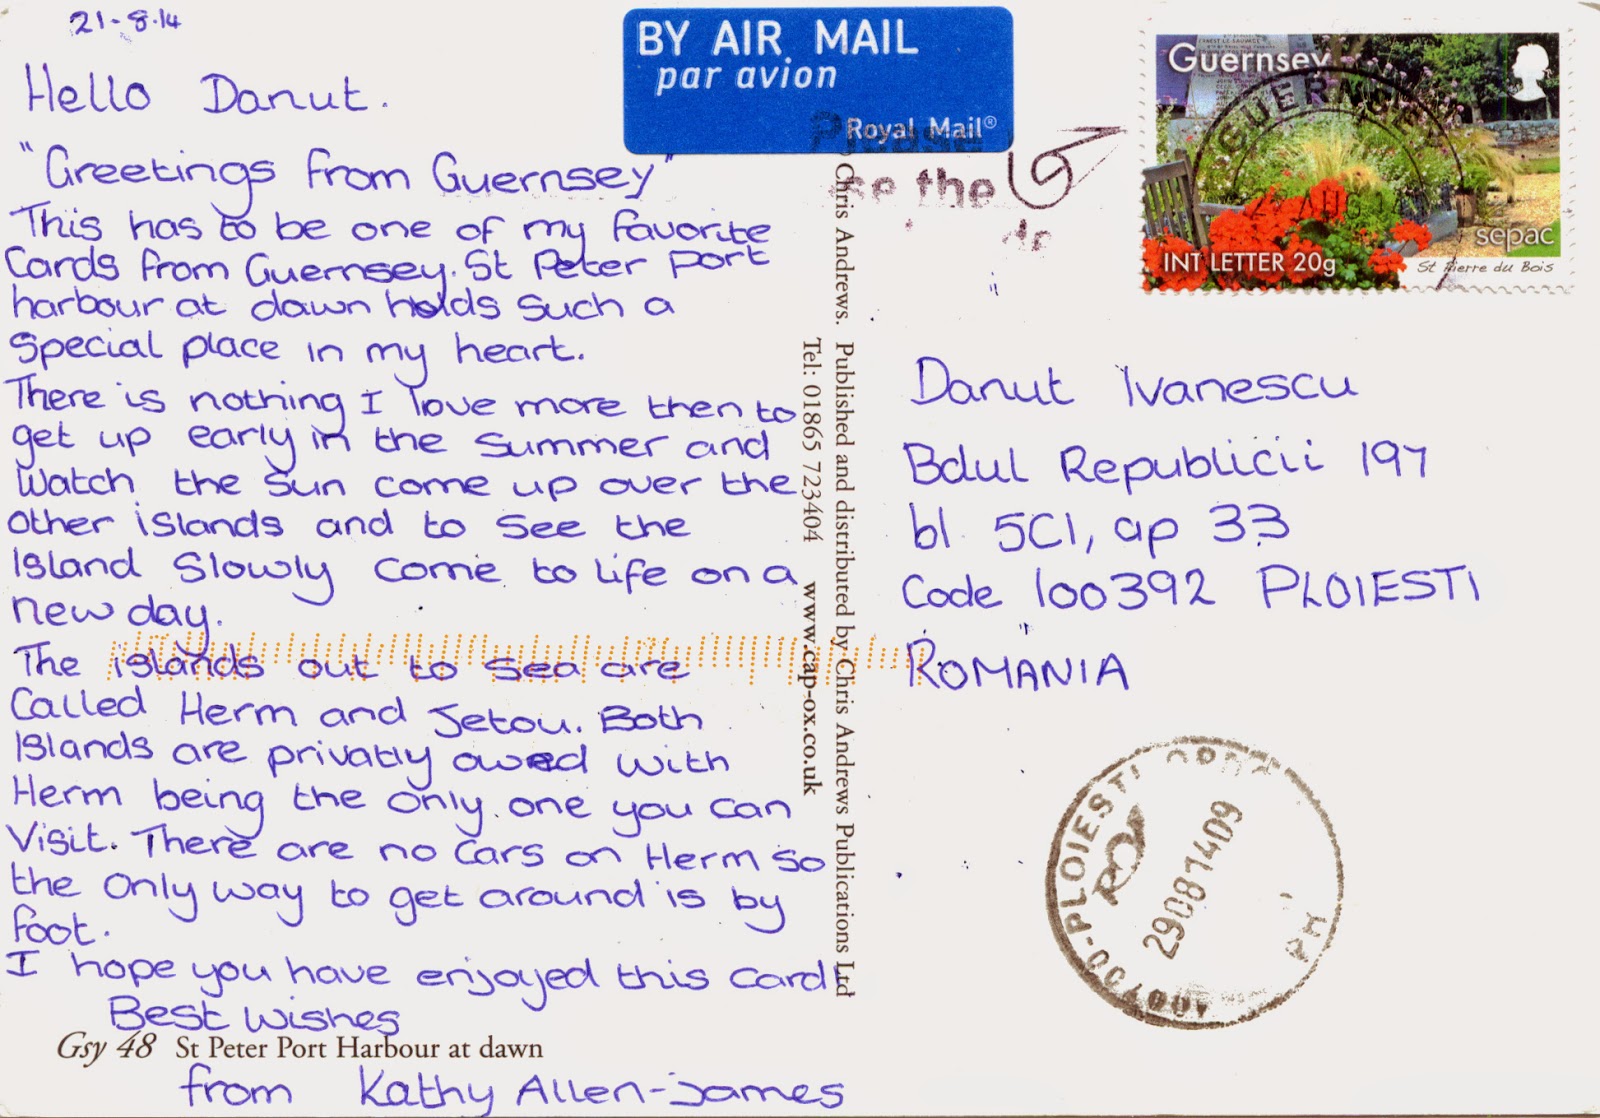 21-8-14
Hello Danut.
"Greetings from Guernsey"
This has to be one of my favorite
Cards from Guernsey. St Peter Port
harbour at dawn holds such a
Special place in my heart.
There is nothing I love more then to
get up early in the summer and
Watch the sun come up over the
other islands and to see the
Island Slowly come to life on a
new day.
The islands out to sea are
Called Herm and Jetou. Both
Islands are privatly owed with
Herm being the only one you can
Visit. There are no cars on Herm so
the only way to get around is by
foot.
I hope you have enjoyed this card!
Best Wishes
Gsy 48 St Peter Port Harbour at dawn
from Kathy Allen-James
BY AIR MAIL
par avion
Royal Mail®
Please
the
© Chris Andrews. Published and distributed by Chris Andrews Publications Ltd
Tel: 01865 723404 www.cap-ox.co.uk
Guernsey
GUERNSEY
AUG
sepac
INT LETTER 20g
St Pierre du Bois
Danut Ivanescu
Bdul Republicii 197
bl. 5C1, ap 33
Code 100392 PLOIESTI
ROMANIA
PLOIESTI
29081409